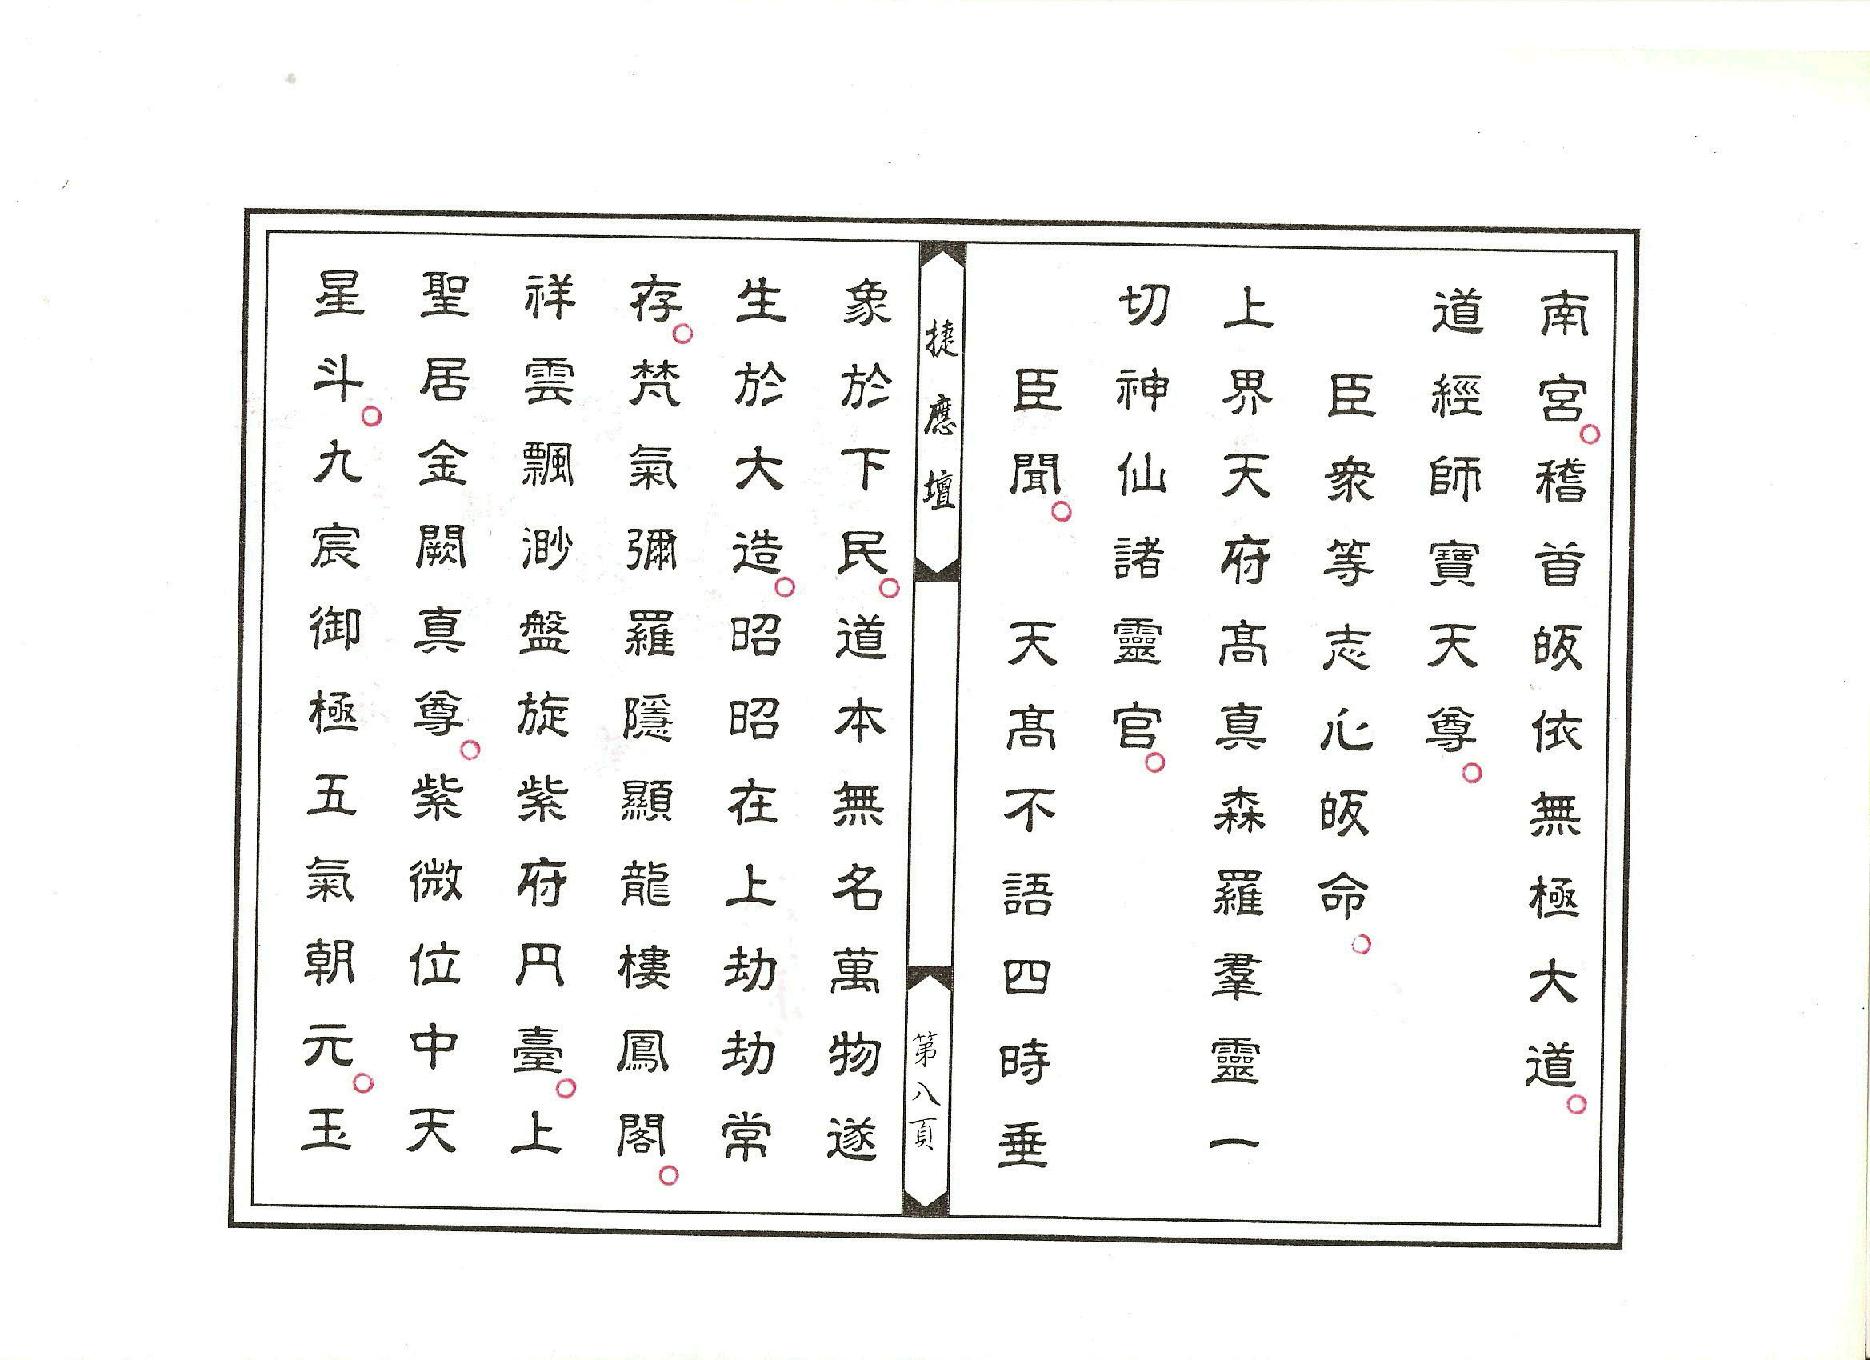 南宮。稽首皈依無極大道。
道經師寶天尊。
臣衆等志心皈命。
上界天府髙真森羅羣靈一
切神仙諸靈官。
臣聞。　天髙不語四時垂
捷應壇
第八頁
象於下民。道本無名萬物遂
生於大造。昭昭在上劫劫常
存。梵氣彌羅隱顯龍樓鳳閣。
祥雲飄渺盤旋紫府円臺。上
聖居金闕真尊。紫微位中天
星斗。九宸御極五氣朝元。玉